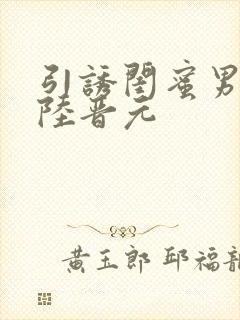 引誘閨蜜男
陸晋元
黄玉郎 邱福龍